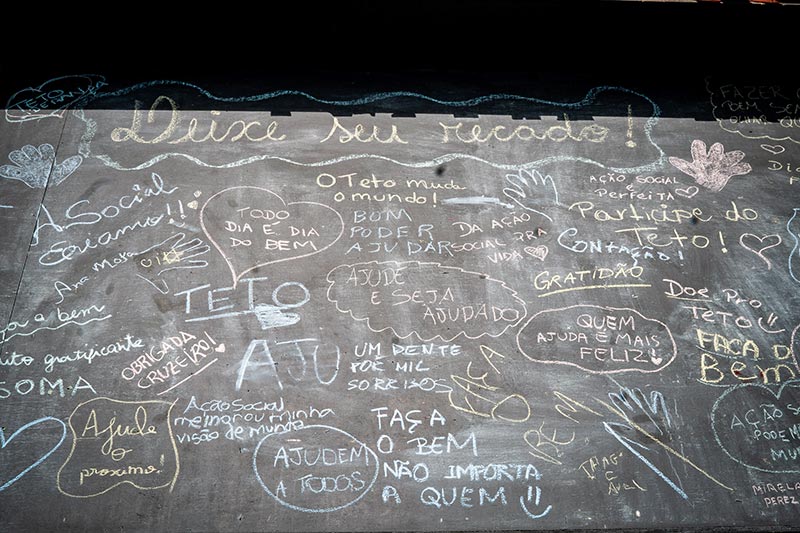 Deixe seu recado!
TETO
FAZER
BEM
A Social
!!
Ana mora
a bem
gratificante
SOMA
OBRIGADA
CRUZEIRO!
Ajude
o
proximo!
TODO
DIA É DIA
DO BEM
TETO
AJU
Ação Social
melhorou minha
visão de mundo
AJUDEM
A TODOS
O TETO muda
o mundo!
BOM
PODER
AJUDAR
AJUDE
E SEJA
AJUDADO
UM DENTE
POE MIL
SORRISOS
FAÇA
O BEM
NÃO IMPORTA
A QUEM
DA AÇÃO
SOCIAL PRA
VIDA
FAÇA
O
BEM
AÇÃO SOCIAL
É PERFEITA
Participe do
Teto!
CONTAÇÃO!
GRATIDÃO
QUEM
AJUDA É MAIS
FELIZ!
Doe Pro
TETO
FAÇA O
Bem
AÇÃO
SOCIAL
PODE
MUDAR
MIRELA
PEREZ